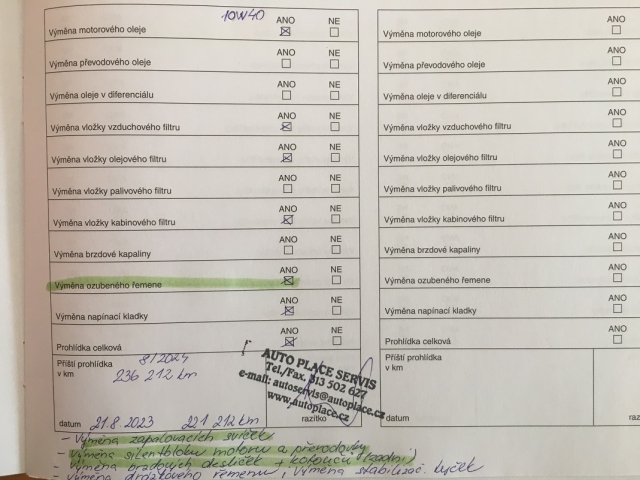 10W40
ANO NE
Výměna motorového oleje
ANO NE
Výměna převodového oleje
ANO NE
Výměna oleje v diferenciálu
ANO NE
Výměna vložky vzduchového filtru
ANO NE
Výměna vložky olejového filtru
ANO NE
Výměna vložky palivového filtru
ANO NE
Výměna vložky kabinového filtru
ANO NE
Výměna brzdové kapaliny
ANO NE
Výměna ozubeného řemene
ANO NE
Výměna napínací kladky
ANO NE
Prohlídka celková
Příští prohlídka 8/2024
v km 236 212 km
AUTO PLACE SERVIS
Tel./Fax. 313 502 627
e-mail: autoservis@autoplace.cz
www.autoplace.cz
datum 21.8.2023 221 212 km razítko
- Výměna zapalovacích svíček
- Výměna silentbloku motoru a převodovky
- Výměna brzdových destiček + kotoučů (zadní)
- Výměna drážkového řemenu, Výměna stabilizač. tyček
ANO
Výměna motorového oleje
ANO
Výměna převodového oleje
ANO
Výměna oleje v diferenciálu
ANO
Výměna vložky vzduchového filtru
ANO
Výměna vložky olejového filtru
ANO
Výměna vložky palivového filtru
ANO
Výměna vložky kabinového filtru
ANO
Výměna brzdové kapaliny
ANO
Výměna ozubeného řemene
ANO
Výměna napínací kladky
ANO
Prohlídka celková
Příští prohlídka
v km
datum raz